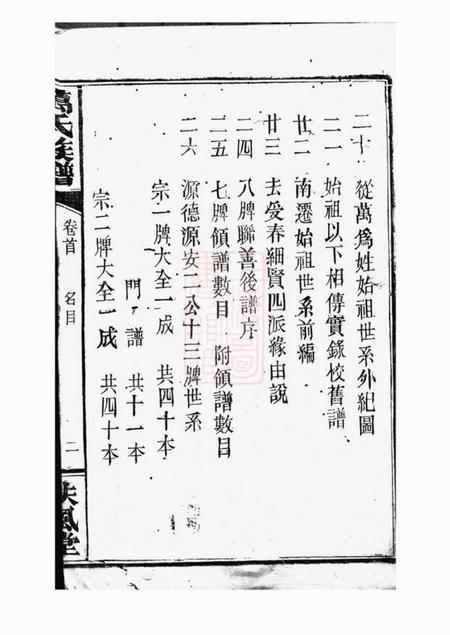 二十 從萬爲姓始祖世系外紀圖
二一 始祖以下相傳實錄校舊譜
廿二 南遷始祖世系前編
廿三 去爰春細賢四派緣由說
二四 八牌聯善後譜序
二五 七牌領譜數目 附領譜數目
二六 源德源安二公十三牌世系
宗一牌大全一成 共四十本
門譜 共十一本
宗二牌大全一成 共四十本
萬氏族譜 卷首 名目 二 扶風堂